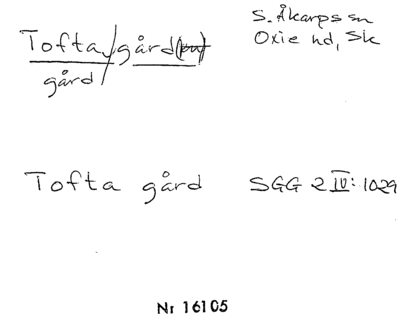 S. Åkarps sn
Tofta gård
Oxie hd, Sk
gård
Tofta gård SGG 2 IV: 1029
Nr 16105